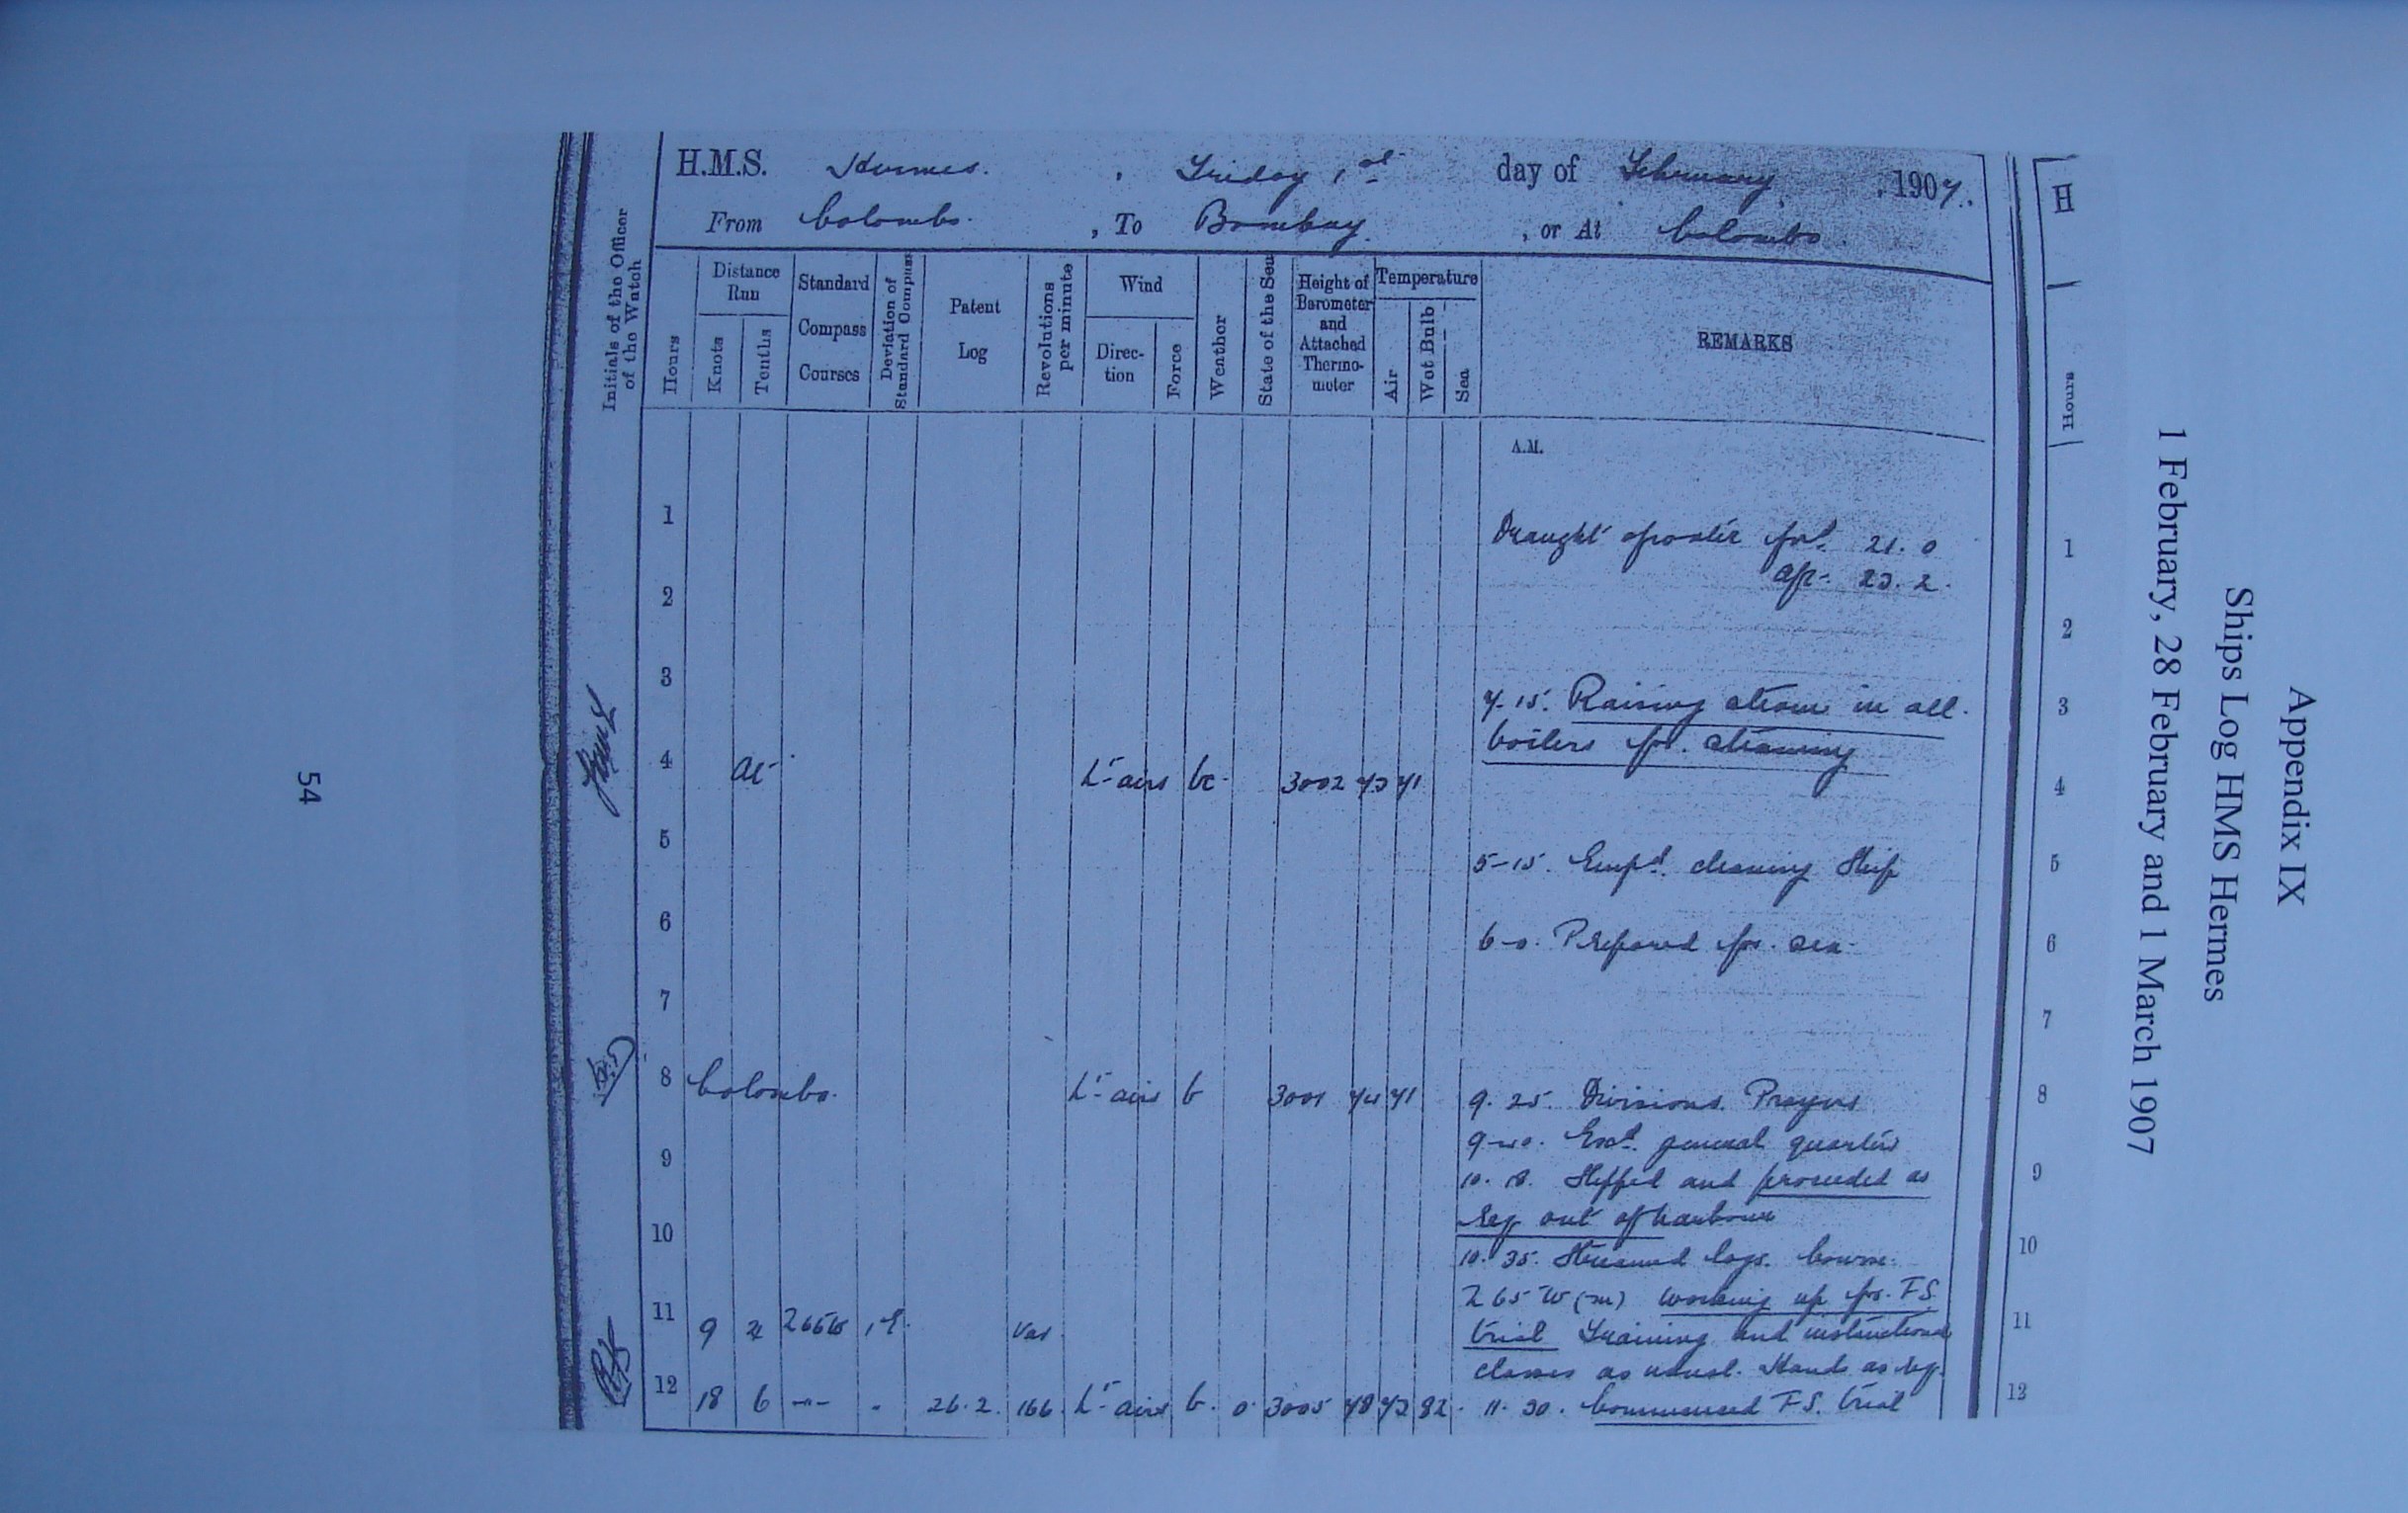 Appendix IX
Ships Log HMS Hermes
1 February, 28 February and 1 March 1907
H.M.S. Hermes. , Friday 1st day of February , 1907.
From Colombo. , To Bombay. , or At Colombo.
Initials of the Officer of the Watch
Hours
Distance Run
Knots
Tenths
Standard Compass Courses
Deviation of Standard Compass
Patent Log
Revolutions per minute
Wind
Direc-tion
Force
Weather
State of the Sea
Height of Barometer and Attached Thermo-meter
Temperature
Air
Wet Bulb
Sea
REMARKS
A.M.
1
Draught of water ford. 21. 0
aft. 23. 2.
2
3
4.15. Raising steam in all
boilers for steaming
4 At Lt airs bc 3002 73 71
5
5-15. Empd. cleaning Ship
6
6-0. Prepared for sea
7
8 Colombo. Lt airs b 3001 74 71
9. 25. Divisions. Prayers
9-40. Exd. general quarters
9
10. 18. Slipped and proceeded as
req out of harbour
10
10. 35. Streamed logs. Course.
265 W (m) working up for F.S.
11 9 4 266W 1E. Var
trial Training and instructional
classes as usual. Hands as req.
12 18 6 -"- " 26.2. 166 Lt airs b. 0 3005 78 73 82
11. 30. Commenced F.S. trial
H
Hours
1
2
3
4
5
6
7
8
9
10
11
12
54